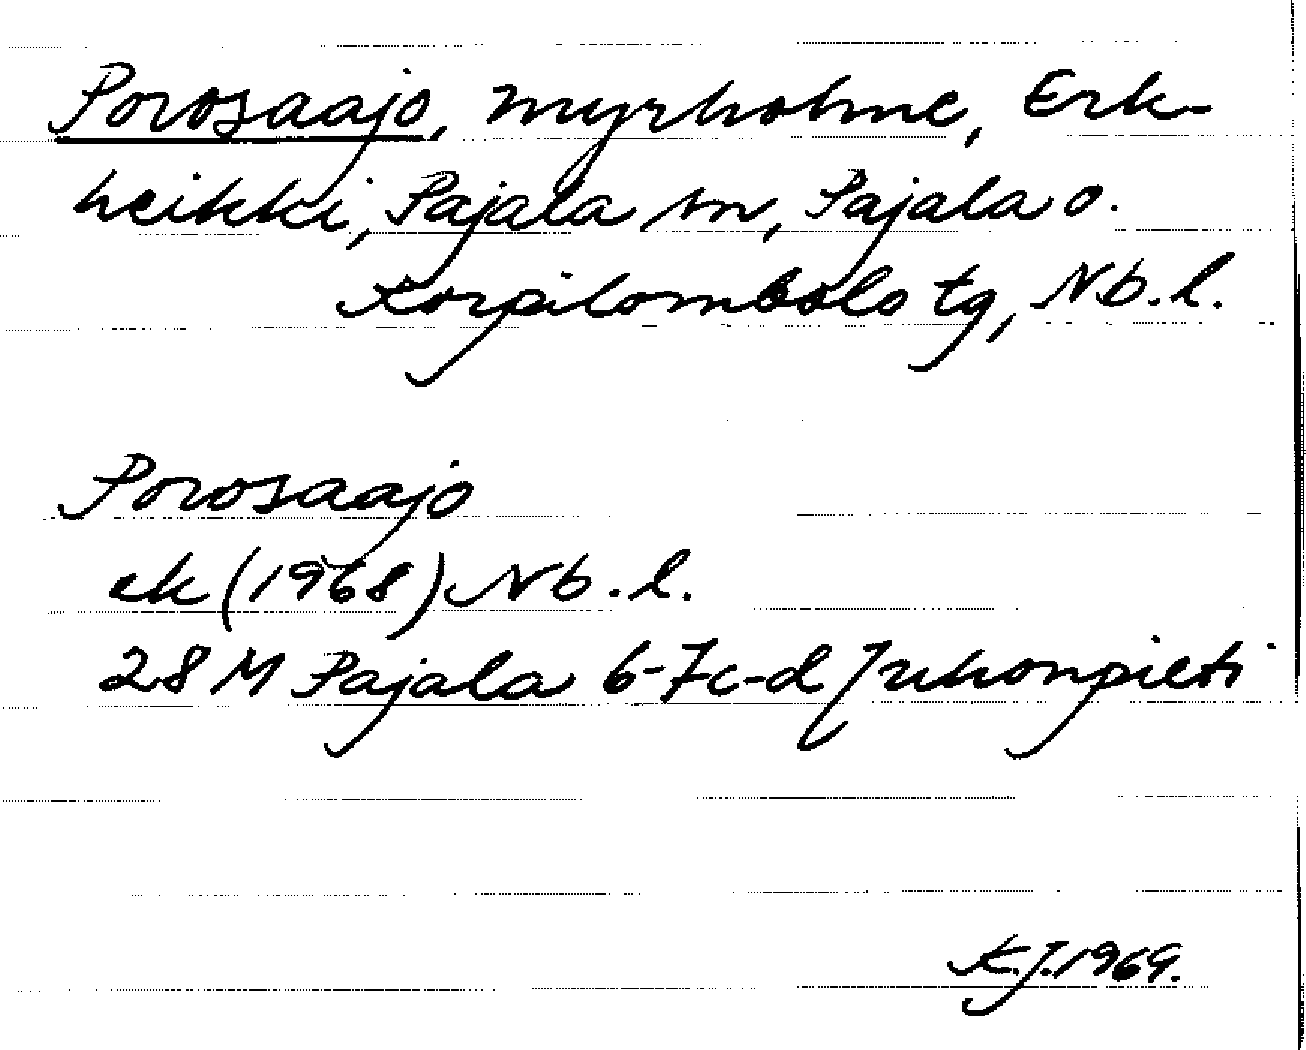 Porosaajo, myrholme, Erk-
heikki, Pajala sn, Pajala o.
Korpilombolo tg, Nb.l.
Porosaajo
ek (1968) Nb.l.
28 M Pajala 6-7c-d Juhonpieti
K.J. 1969.